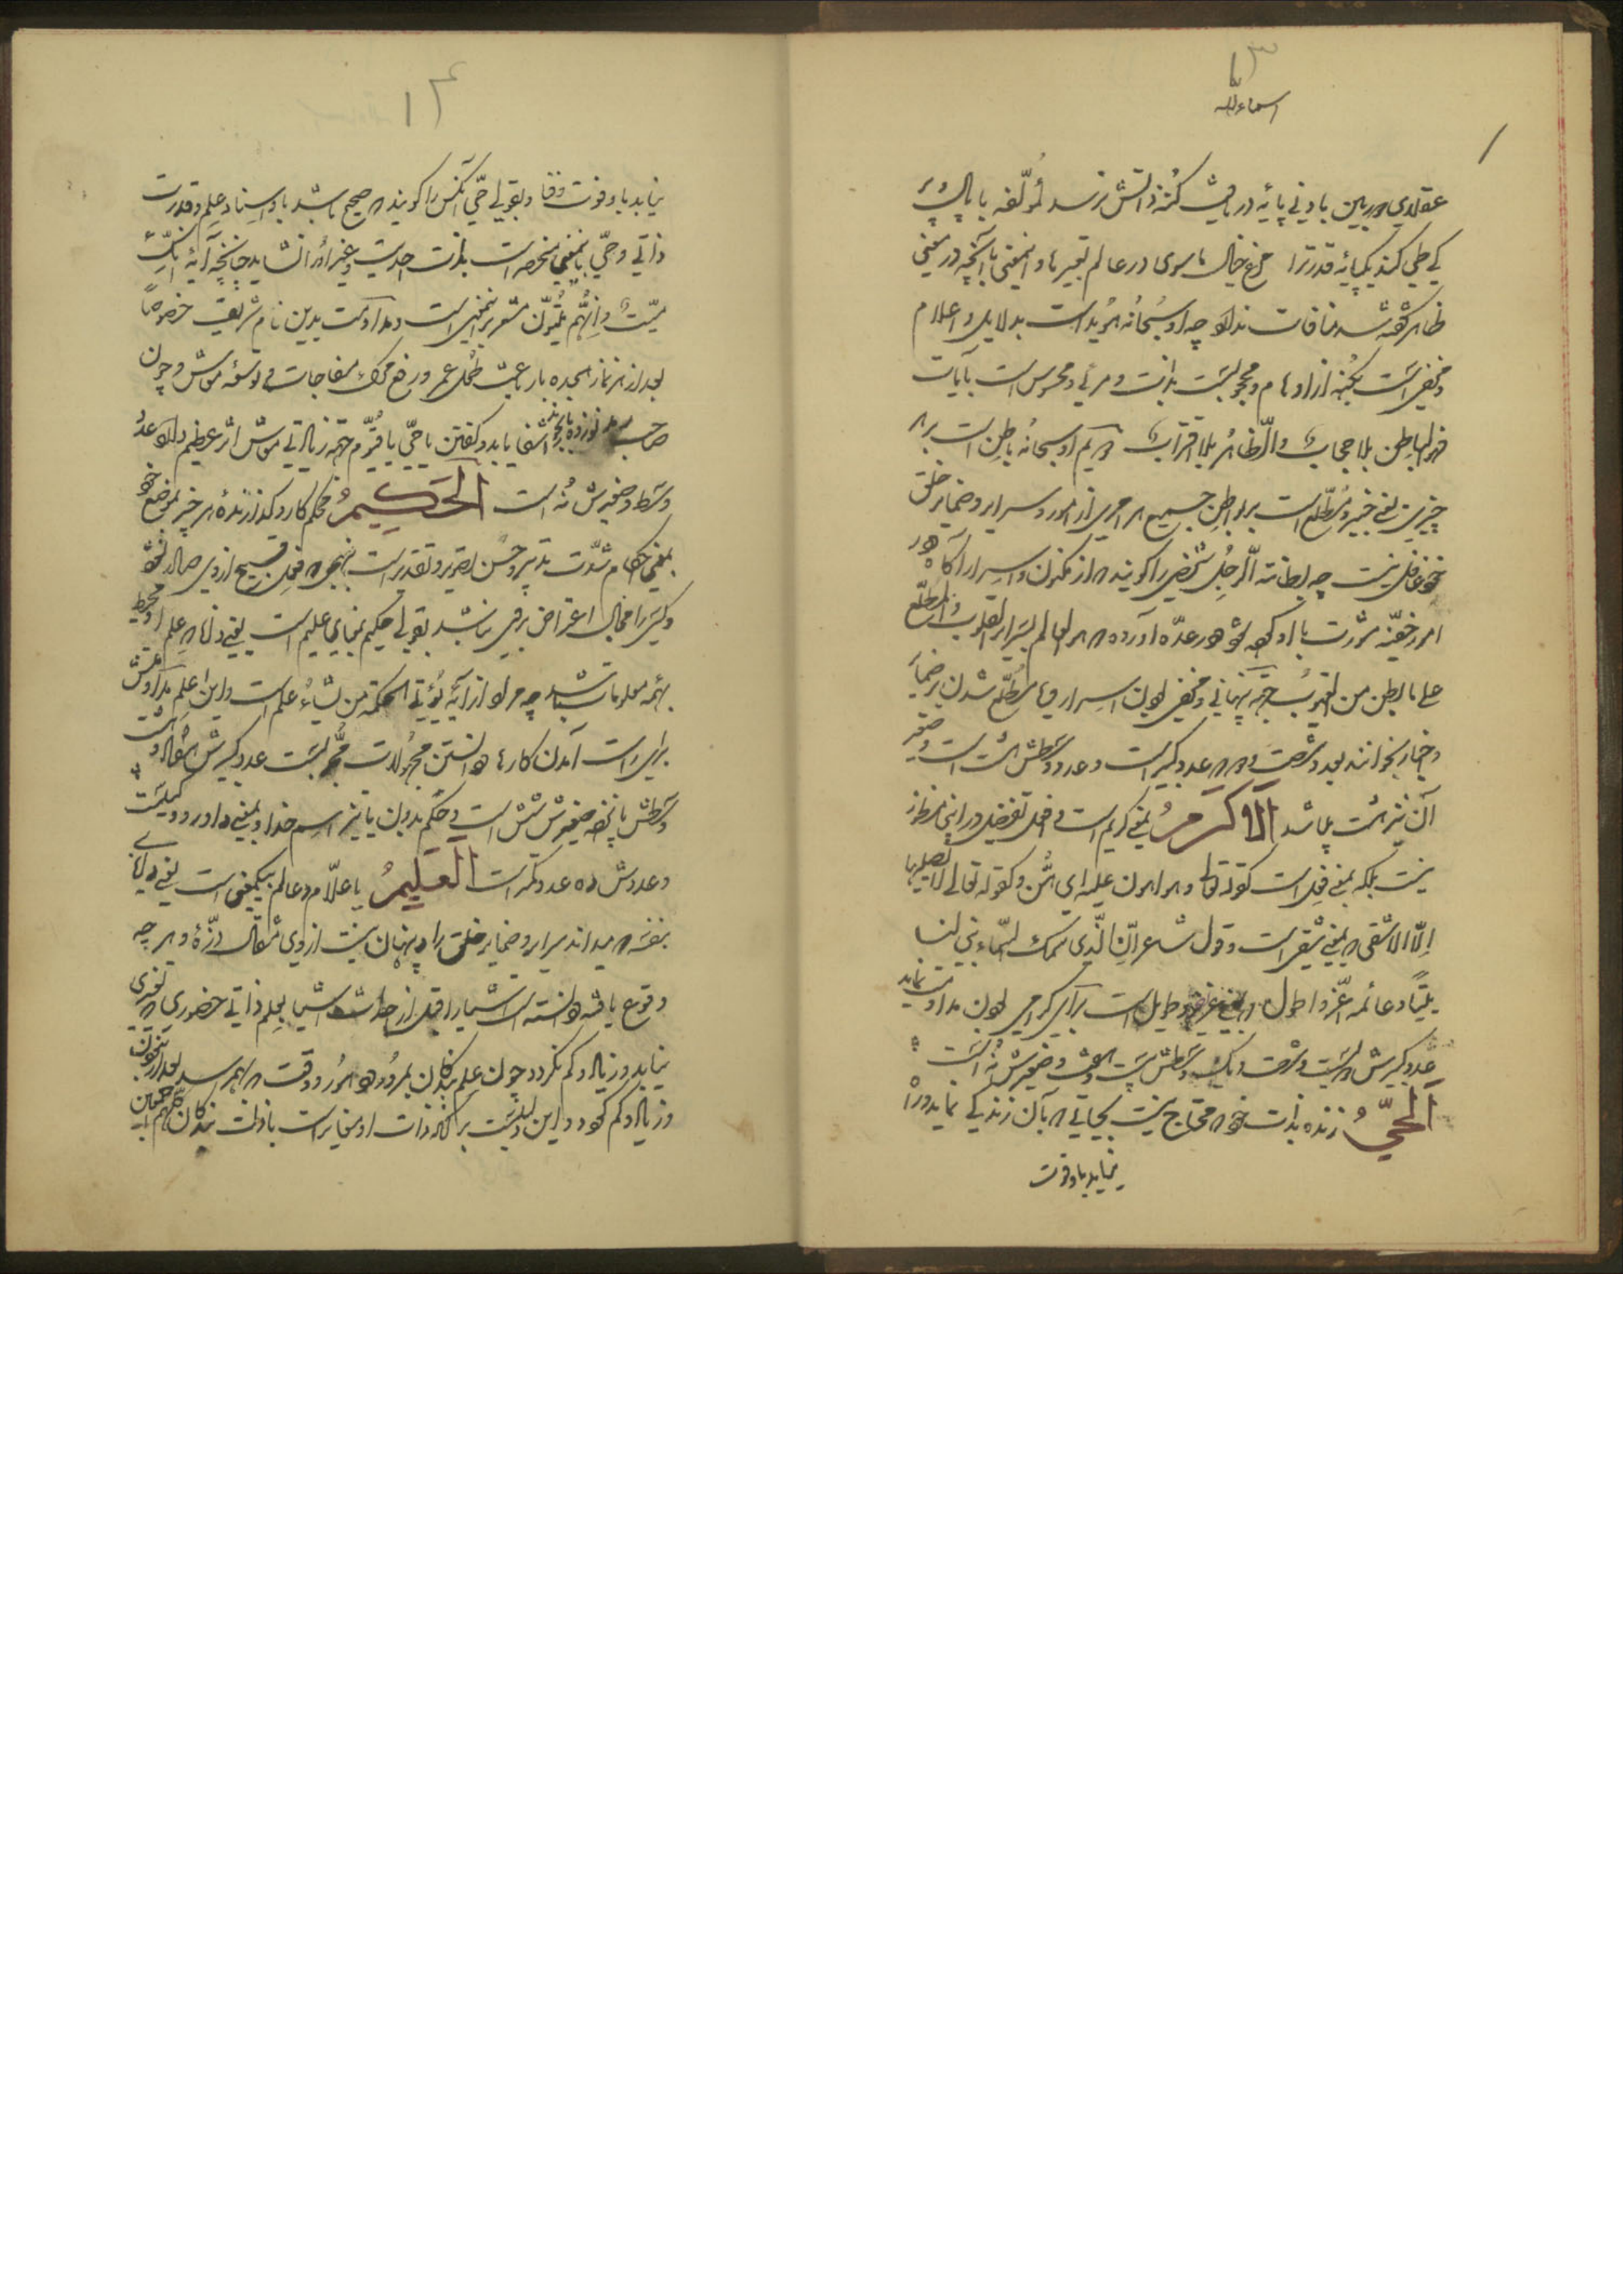 ١٣
اسماء الله
عقلای دوربین بادنی پایهٔ دریافت کنه ذاتش نرسد لمؤلفه با بال و پر
کی طی کند یکپایه قدر ترا مرغ خیال ما سوی در عالم تعبیرها و اینمعنی با آنچه در معنی
ظاهر گفته شد منافات ندارد چه او سبحانه هویداست بدلایل و اعلام
و مخفی است بکنه از اوهام و محجوبست بذات و مرئی و محسوس است بآیات
فهو الباطن بلا حجاب والظاهر بلا اقتراب او سبحانه باطن است بهر
چیزی یعنی خبیر و مطلع است بر بواطن جمیع هر امری از امور و سرایر و ضمایر خلق
غافل نیست چه بطانة الرجل شخصی را گویند که از مکنون و اسرار او آگاه
امور خفیه مشورت با او کند العالم بسرایر القلوب والمطلع
علی ما بطن من الغیوب جهة پنهانی و مخفی بودن اسرار و مطلع شدن بر ضمایر
و خبایا بخوانند بعدد شصت و دو که عدد کبیر است و عدد وسطش هشت است و صغیر
آن نیز هشت میباشد الاکرم بمعنی کریم است و افعل تفضیل در اینجا منظور
نیست بلکه بمعنی فعیل است کقوله تعالی و هو اهون علیه ای هین و کقوله تعالی لا یصلیها
الا الاشقی که بمعنی شقی است و قول شاعر ان الذی سمک السماء بنی لنا
بیتا دعائمه اعز و اطول یعنی عزیز و طویل است برای گرامی بودن مداومت نماید
عدد کبیرش دویست و شصت و یک وسطش بیست و هفت و صغیرش نه است
الحی زنده بذات خود که محتاج نیست بحیاتی که بآن زندگی نماید و راه
نیابد باو فوت
١٤
نیابد باو فوت و فنا و بقولی حی آنکس را گویند که صحیح باشد باو اسناد علم و قدرت
ذاتی و حی باینمعنی منحصر است بذات احدیت و غیر او را نشاید چنانچه آیه انک
میت و انهم میتون مشعر بر اینمعنی است و مداومت بدین نام شریف خصوصا
بعد از هر نماز هجده بار باعث طول عمر و رفع مرک مفاجات و توسعه معاش و چون
صاحب رمد نوزده بار بخواند شفا یابد و گفتن یا حی یا قیوم جهة زیادتی معاش اثر عظیم دارد عدد
وسط و صغیرش نه است الحکیم محکم کار و گذارنده هر چیز بموضع خود
بمعنی احکام شدت تدبیر و حسن تصویر و تقدیر است بنهجی که فعل قبیح از وی صادر نشود
و کسی را مجال اعتراض بر وی نباشد بقولی حکیم بمعنای علیم است یعنی دانا که علم او محیط
بهمه معلومات باشد چه مراد از آیه یؤتی الحکمة من یشاء علم است و این اسم مداومتش
برای راست آمدن کارها و دانستن مجهولات مجربست عدد کبیرش هفتاد و هشت
وسطش پانزده صغیرش شش است و حکم بدون یا نیز اسم خدا و بمعنی داور و وکیلست
و عددش ده عدد کمتر است العلیم یا علام و عالم بیکمعنی است یعنی دانای
بنفسه که میداند سرایر و ضمایر خلق را و پنهان نیست از وی مثقال ذره و هر چه
وقوع یافته دانسته است اشیا را قبل از احداث اشیا بعلم ذاتی حضوری که تغیری
نیابد و زیاد و کم نگردد چون علم بندگان بمرور دهور و وقت که بهم رسد بعد از نبودن
و زیاد و کم شود و این دلیلست بر آنکه ذات او مغایر است با ذات بندگان